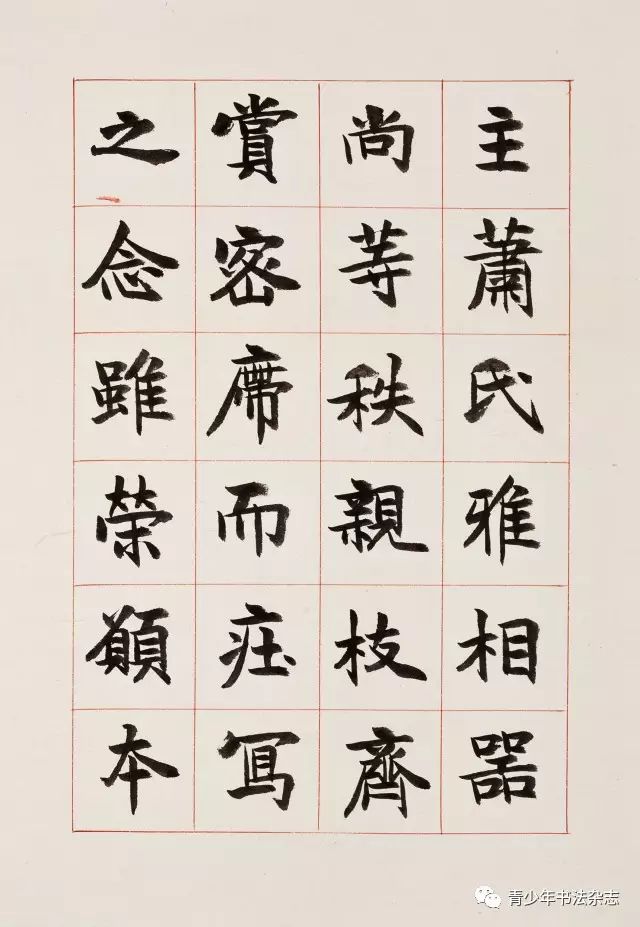 主蕭氏雅相器
尚等秩親枝齊
賞密席而莊寫
之念雖榮顧本
青少年书法杂志